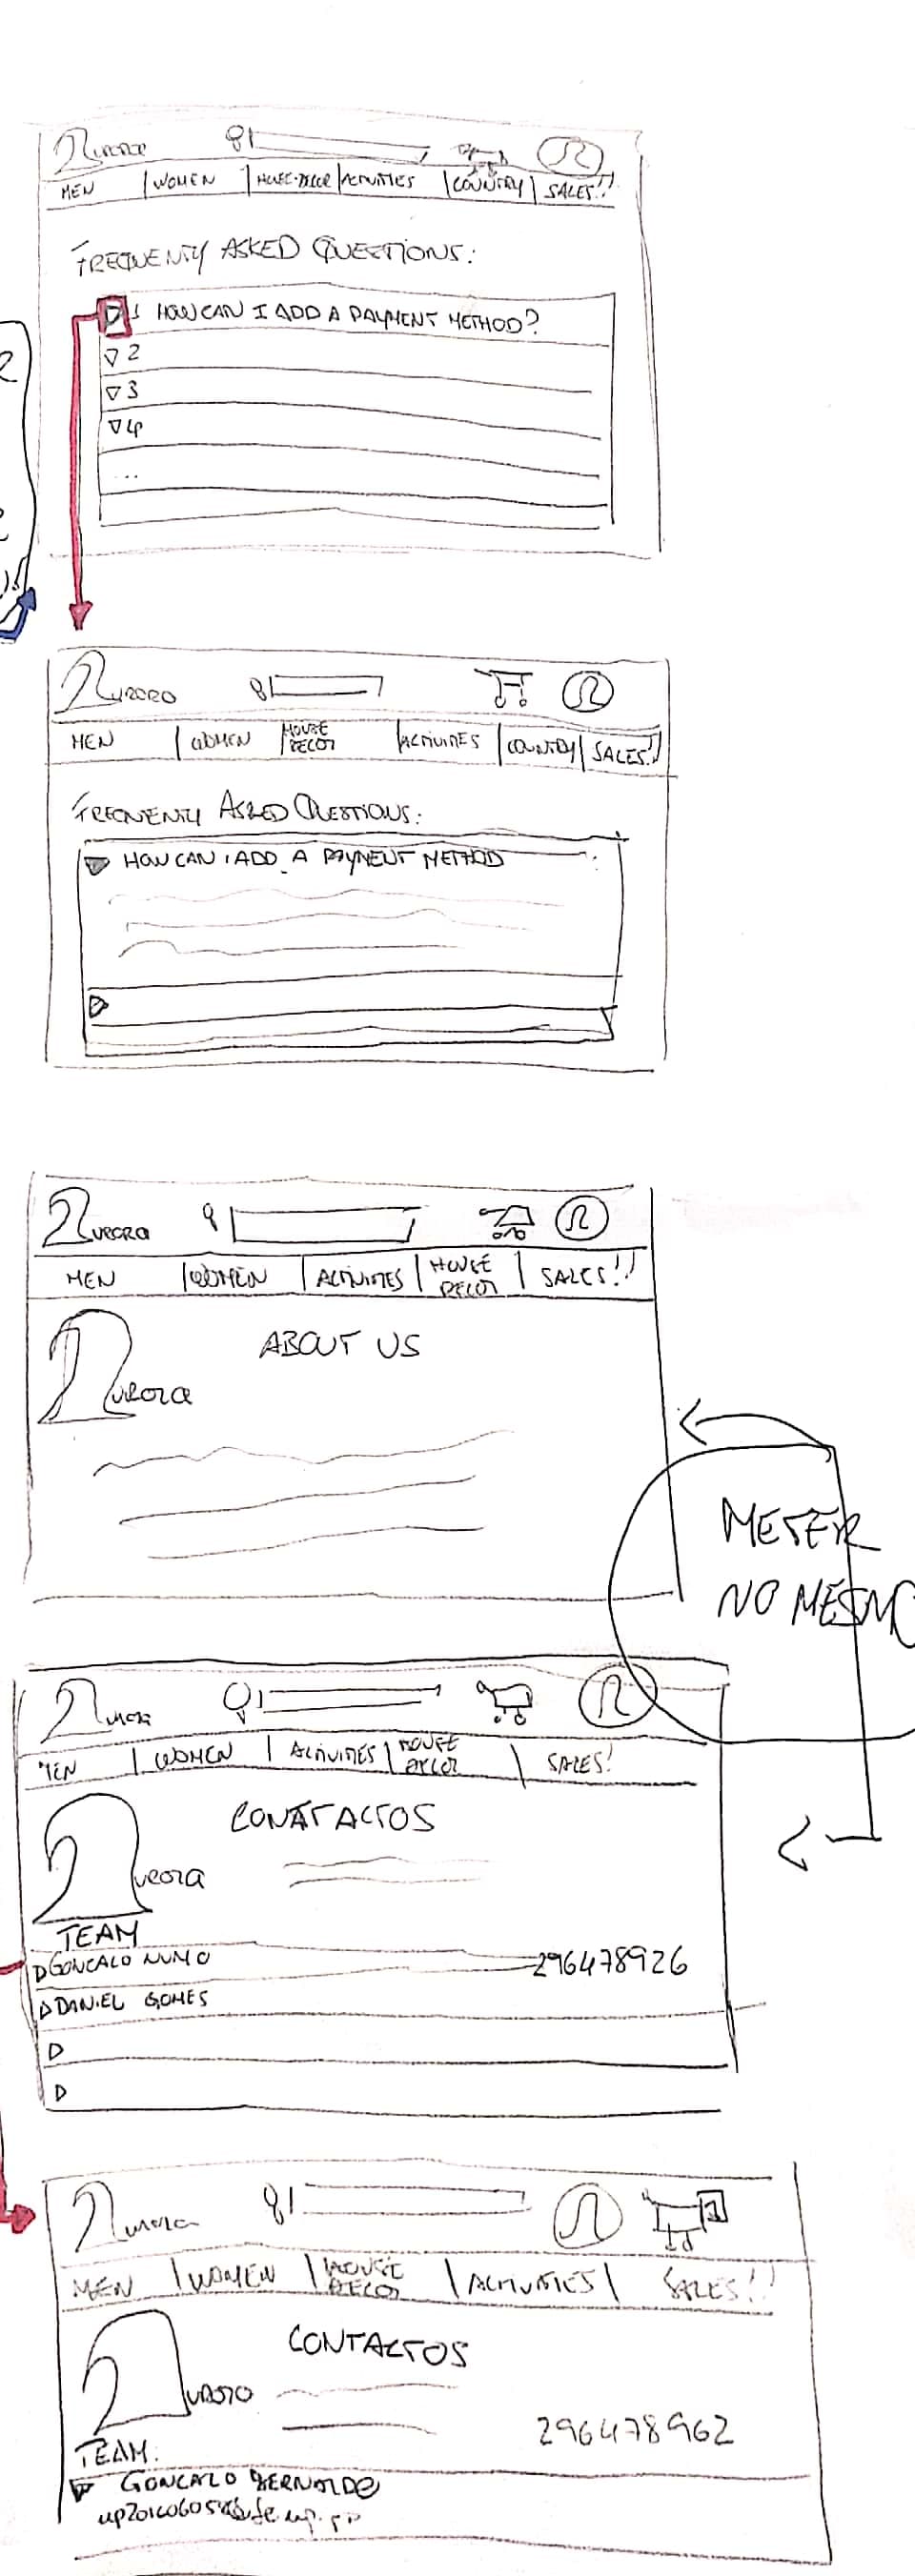 Aurora
MEN | WOMEN | HOUSE DECOR | ACTIVITIES | COUNTRY | SALES!!
FREQUENTLY ASKED QUESTIONS:
▷ 1 HOW CAN I ADD A PAYMENT METHOD?
▽ 2
▽ 3
▽ 4
...
Aurora
MEN | WOMEN | HOUSE DECOR | ACTIVITIES | COUNTRY | SALES!!
FREQUENTLY ASKED QUESTIONS:
HOW CAN I ADD A PAYMENT METHOD
Aurora
MEN | WOMEN | ACTIVITIES | HOUSE DECOR | SALES!!
ABOUT US
Aurora
METER
NO MESMO
Aurora
MEN | WOMEN | ACTIVITIES | HOUSE DECOR | SALES!
CONTATACTOS
Aurora
TEAM
GONCALO NUNO 296478926
DANIEL GOMES
Aurora
MEN | WOMEN | HOUSE DECOR | ACTIVITIES | SALES!!
CONTACTOS
Aurora
296478962
TEAM:
GONCALO BERNARDO